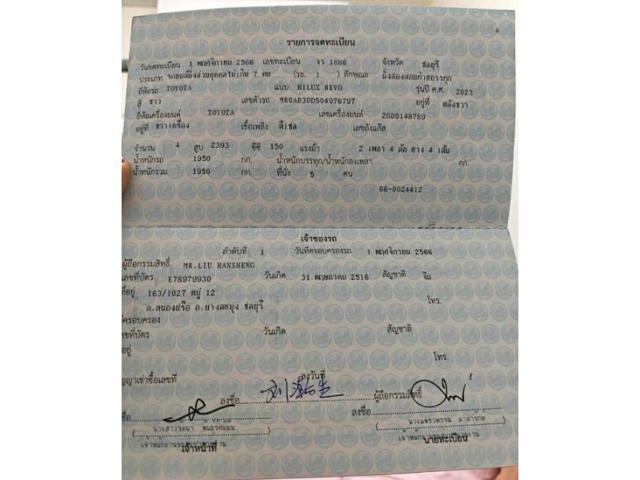 รายการจดทะเบียน
วันจดทะเบียน 1 พฤศจิกายน 2566 เลขทะเบียน จร 1886 จังหวัด ชลบุรี
ประเภท รถยนต์นั่งส่วนบุคคลไม่เกิน 7 คน (รย. 1 ) ลักษณะ นั่งสองตอนท้ายบรรทุก
ยี่ห้อรถ TOYOTA แบบ HILUX REVO รุ่นปี ค.ศ. 2023
สี ขาว เลขตัวรถ MR0AB3DD504976797 อยู่ที่ หลังขวา
ยี่ห้อเครื่องยนต์ TOYOTA เลขเครื่องยนต์ 2GD9148789
อยู่ที่ ขวาเครื่อง เชื้อเพลิง ดีเซล เลขถังแก๊ส
จำนวน 4 สูบ 2393 ซีซี 150 แรงม้า 2 เพลา 4 ล้อ ยาง 4 เส้น
น้ำหนักรถ 1950 กก. น้ำหนักบรรทุก/น้ำหนักลงเพลา กก.
น้ำหนักรวม 1950 กก. ที่นั่ง 5 คน
66-0024412
เจ้าของรถ
ลำดับที่ 1 วันที่ครอบครองรถ 1 พฤศจิกายน 2566
ผู้ถือกรรมสิทธิ์ MR.LIU HANSHENG
เลขที่บัตร E78979930 วันเกิด 31 พฤษภาคม 2516 สัญชาติ จีน
ที่อยู่ 163/1027 หมู่ 12 โทร.
ต.หนองปรือ อ.บางละมุง ชลบุรี
ครอบครอง
เลขที่บัตร วันเกิด สัญชาติ
อยู่ โทร.
สัญญาเช่าซื้อเลขที่ ลงวันที่
ลงชื่อ ผู้ถือกรรมสิทธิ์
ลงชื่อ
เจ้าหน้าที่ นายทะเบียน